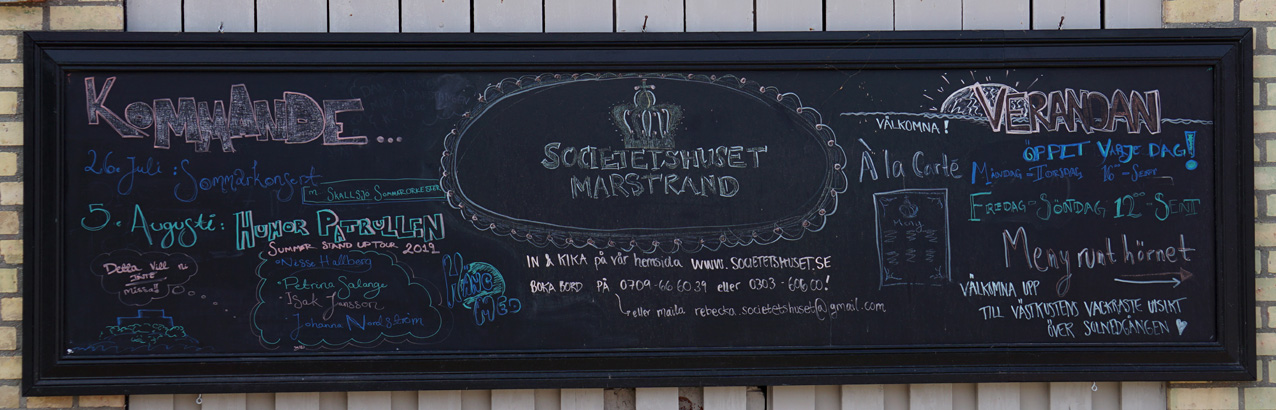 KOMMANDE...
26. Juli : Sommarkonsert
m. SKALLSJÖ SOMMARORKESTER
5. Augusti: HUMOR PATRULLEN
SUMMER STAND UP TOUR 2019
Nisse Hallberg
Petrina Solange
Isak Jansson
Johanna Nordström
Detta vill ni
INTE
missa!!
HÄNG
MED
SOCIETETSHUSET
MARSTRAND
IN & KIKA på vår hemsida WWW.SOCIETETSHUSET.SE
BOKA BORD PÅ 0709-66 60 39 eller 0303-606 00!
eller maila rebecka.societetshuset@gmail.com
VÄLKOMNA!
VERANDAN
ÖPPET VARJE DAG!
À la Carté
MÅNDAG-TORSDAG 16°°-SENT
FREDAG-SÖNDAG 12°°-SENT
Meny
Meny runt hörnet
VÄLKOMNA UPP
TILL VÄSTKUSTENS VACKRASTE UTSIKT
ÖVER SOLNEDGÅNGEN